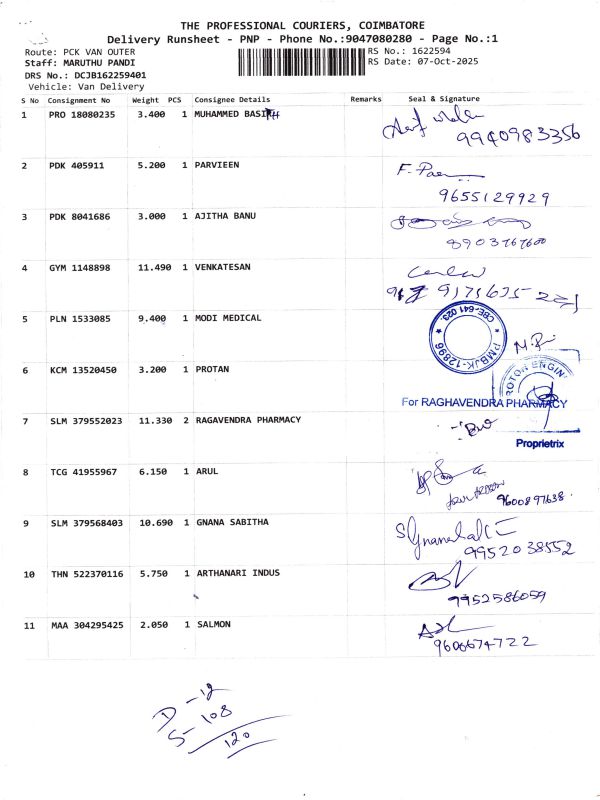 THE PROFESSIONAL COURIERS, COIMBATORE
Delivery Runsheet - PNP - Phone No.:9047080280 - Page No.:1
Route: PCK VAN OUTER
RS No.: 1622594
Staff: MARUTHU PANDI
RS Date: 07-Oct-2025
DRS No.: DCJB162259401
Vehicle: Van Delivery
S No Consignment No Weight PCS Consignee Details Remarks Seal & Signature
1 PRO 18080235 3.400 1 MUHAMMED BASITH
9940983356
2 PDK 405911 5.200 1 PARVIEEN
9655129929
3 PDK 8041686 3.000 1 AJITHA BANU
8903767600
4 GYM 1148898 11.490 1 VENKATESAN
5 PLN 1533085 9.400 1 MODI MEDICAL
CBE-641 023.
PMBJK-12896
6 KCM 13520450 3.200 1 PROTAN
ROTOR ENGIN
For RAGHAVENDRA PHARMACY
7 SLM 379552023 11.330 2 RAGAVENDRA PHARMACY
Proprietrix
8 TCG 41955967 6.150 1 ARUL
9600897638
9 SLM 379568403 10.690 1 GNANA SABITHA
9952038552
10 THN 522370116 5.750 1 ARTHANARI INDUS
9952586059
11 MAA 304295425 2.050 1 SALMON
9606674722
D - 12
S - 108
120